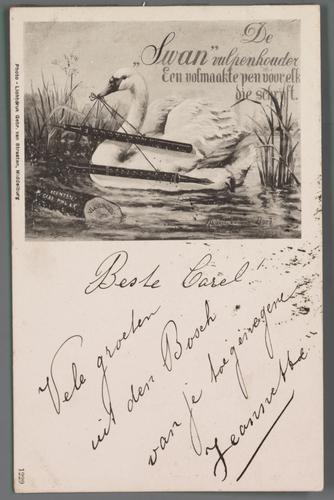 De
„Swan" vulpenhouder
Een volmaakte pen voor elk
die schrijft.
Photo - Lichtdruk Gebr. van Straaten, Middelburg
Beste Carel!
Vele groeten
uit den Bosch
van je toegenegene
Jeannette
1229